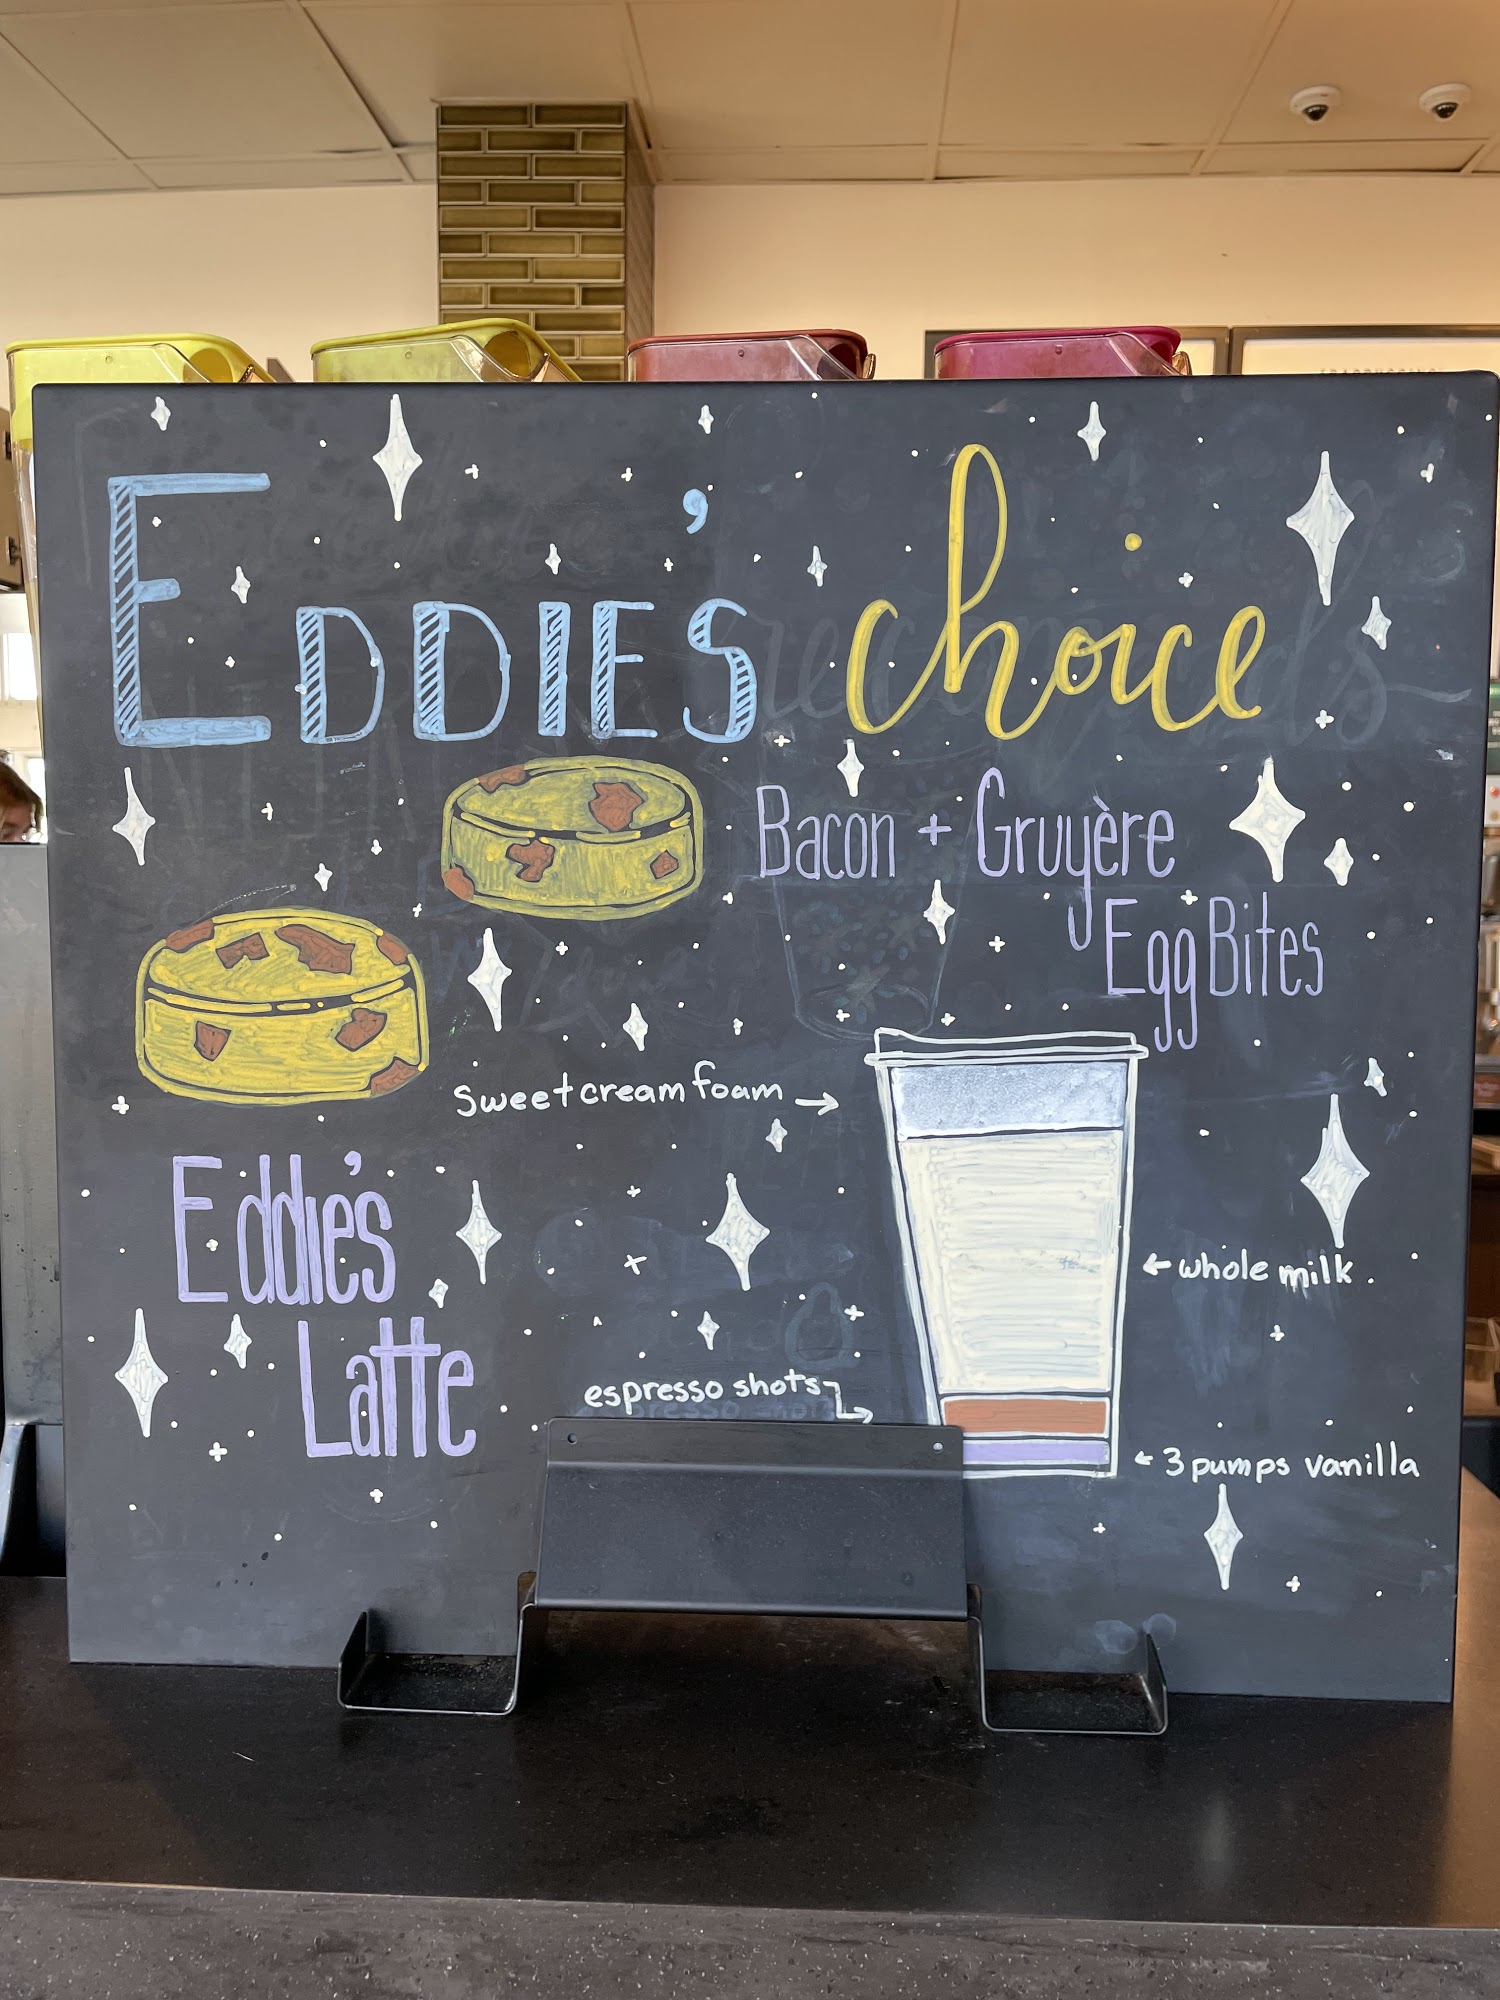 EDDIE'S choice
Bacon + Gruyère
Egg Bites
sweet cream foam →
Eddie's
Latte
← whole milk.
espresso shots
← 3 pumps vanilla